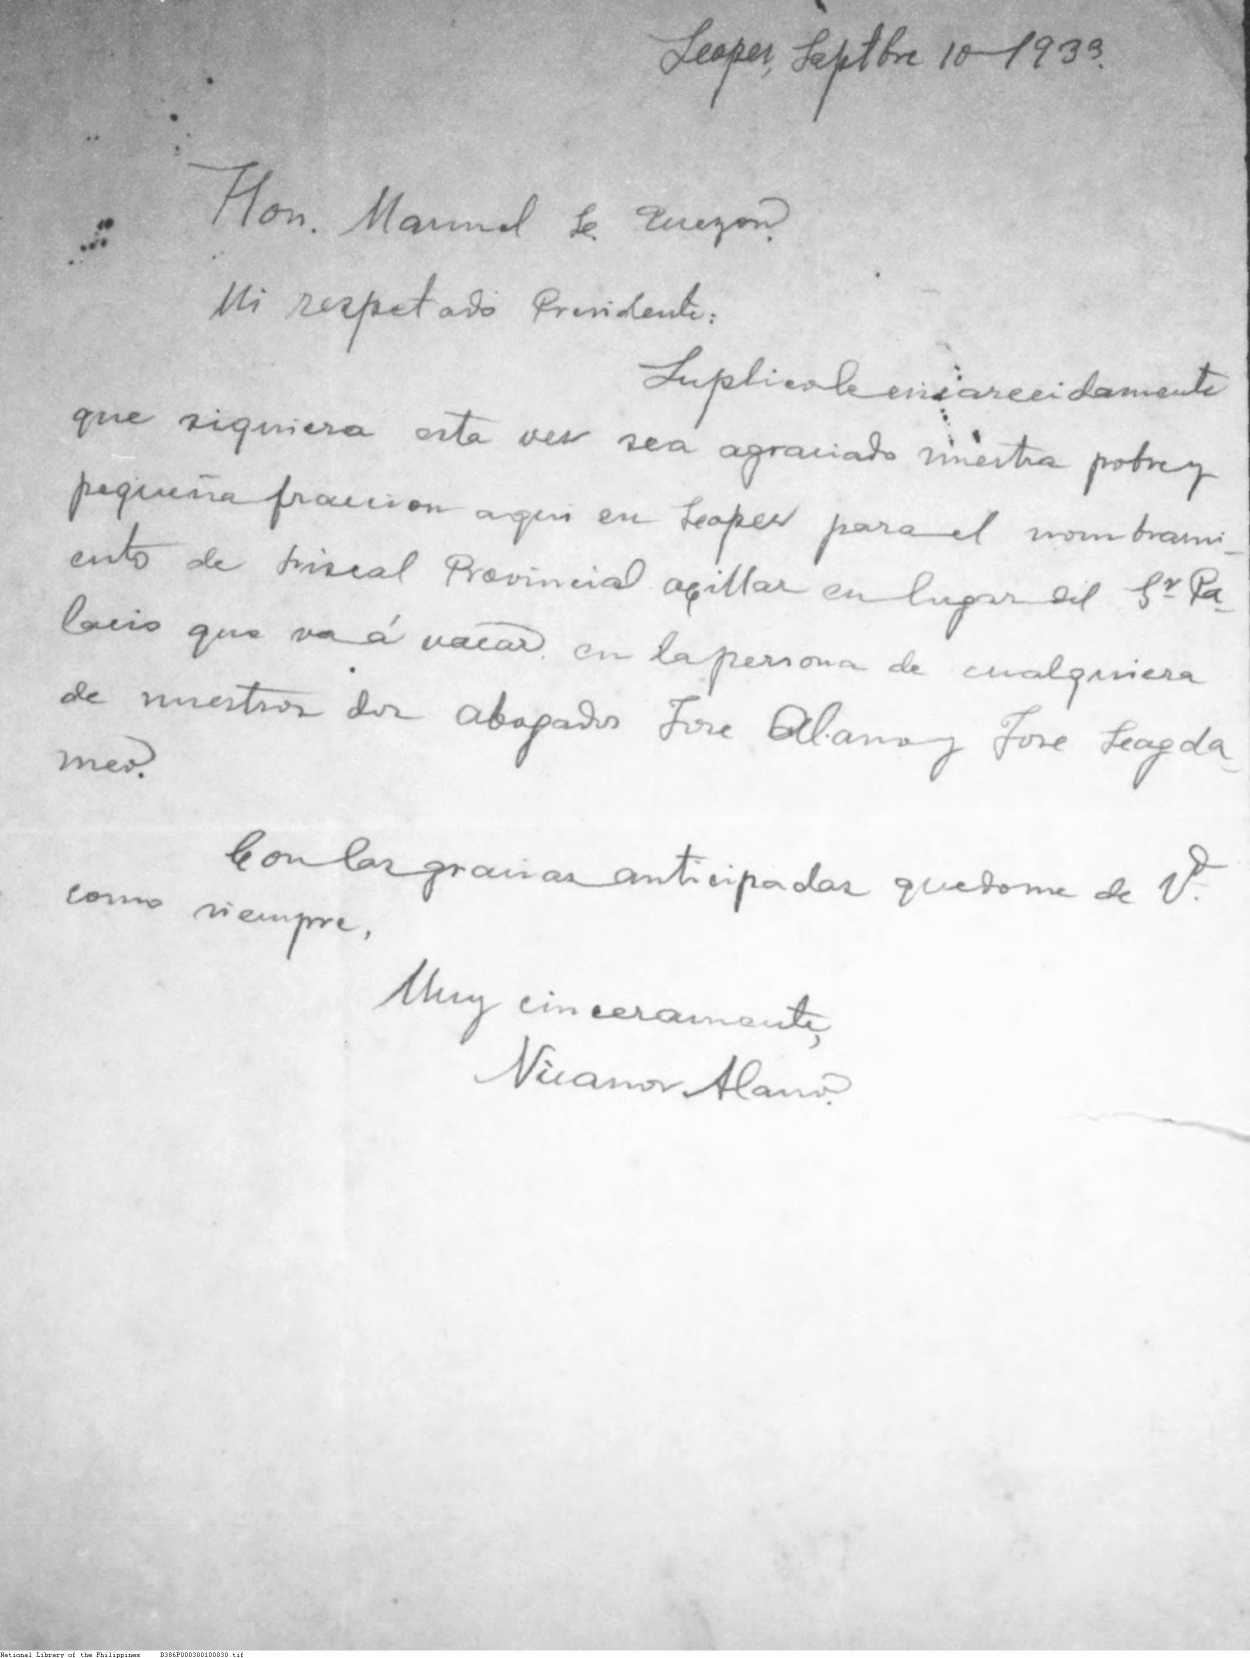 Lopez, Septbre 10-1933.
Hon. Manuel L. Quezon.
Mi respetado Presidente:
Suplicole encarecidamente
que siquiera esta vez sea agraciado nuestra pobre y
pequeña fraccion aqui en Lopez para el nombrami-
ento de Fiscal Provincial auxillar en lugar del Sr. Pa-
lacio que va á vacar en la persona de cualquiera
de nuestros dos abogados Jose Alano y Jose Lagda-
meo.
Con las gracias anticipadas quedome de Vd.
como siempre,
Muy cinceramente,
Nicanor Alano.
National Library of the Philippines B386P000380100830.tif